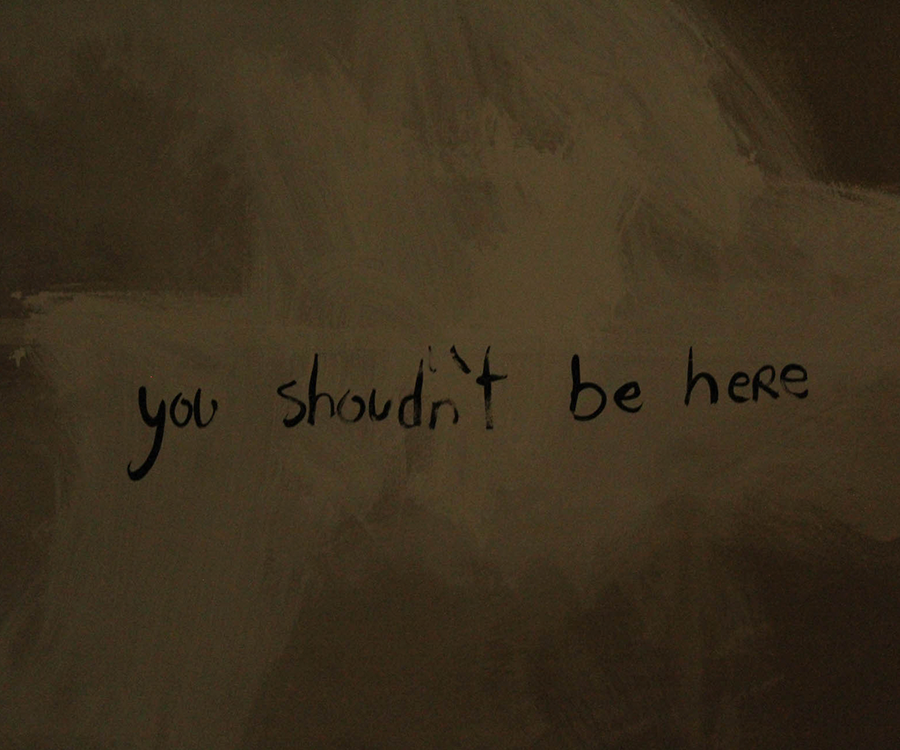 you shoudn't be here